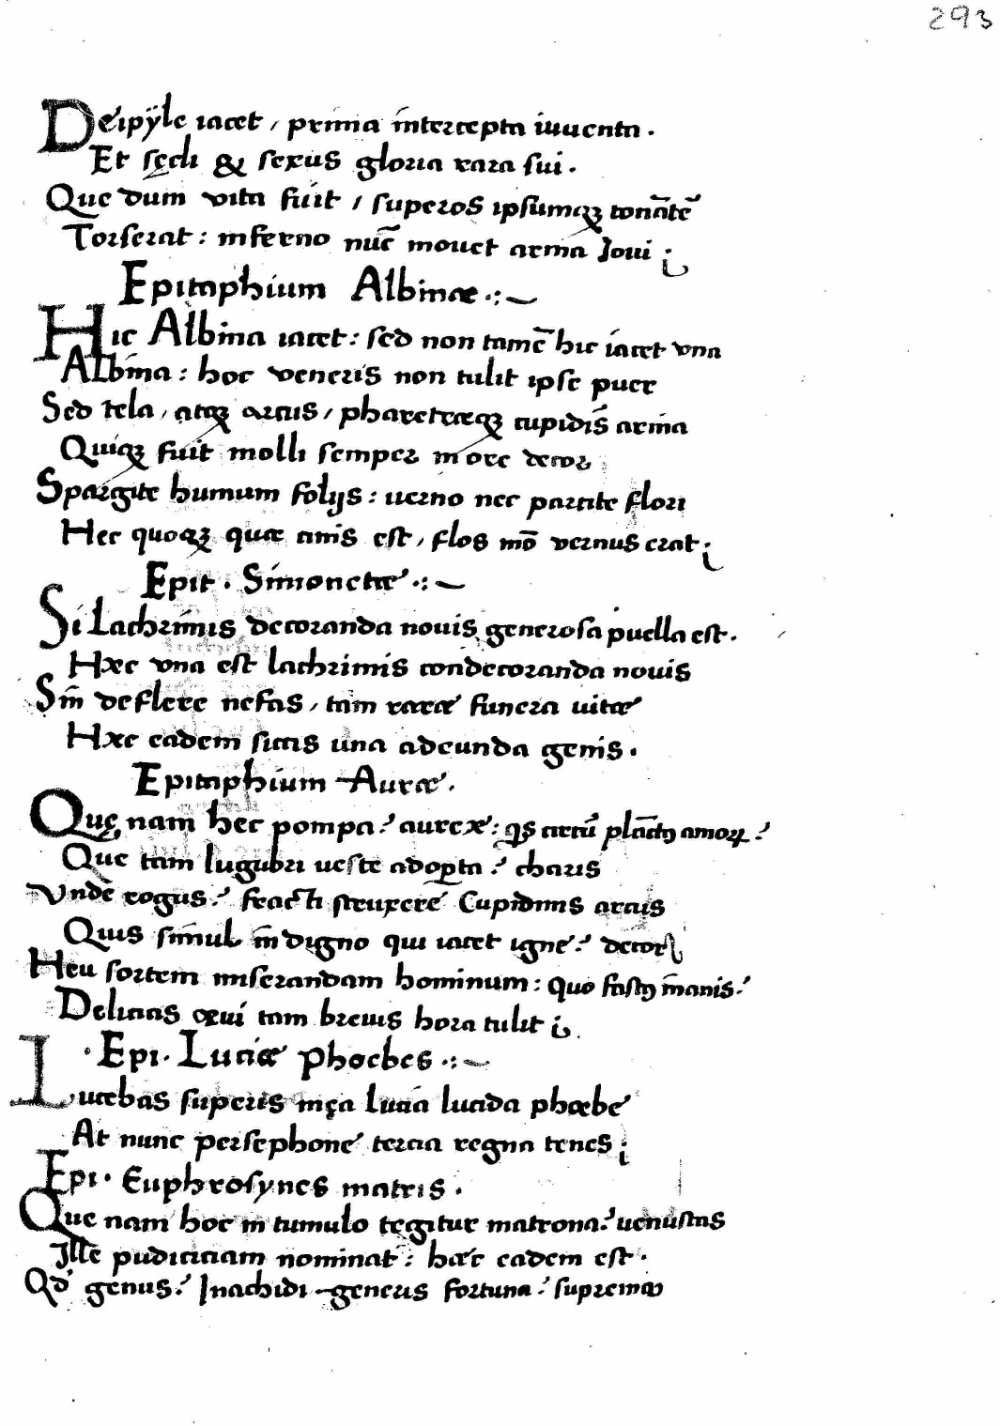 293
Deipÿle iacet, prima intercepta iuuenta.
Et sęcli & sexus gloria rara sui.
Que dum vita fuit, superos ipsumqꝫ tonātē
Torserat: inferno nūc mouet arma Joui;
Epitaphium Albinae.:~
Hic Albina iacet: sed non tamē hic iacet vna
Albina: hoc veneris non tulit ipse puer
Sed tela, atqꝫ arcus, pharetraeqꝫ cupidīs arma
Quiqꝫ fuit molli semper in ore decor;
Spargite humum folijs: uerno nec parcite flori
Hec quoqꝫ quae cinis est, flos mō vernus erat;
Epit. Simonettae.:~
Si Lachrimis decoranda nouis generosa puella est.
Haec vna est lachrimis condecoranda nouis
Sīn deflere nefas, tam rarae funera uitae
Haec eadem siccis una adeunda genis.
Epitaphium Aurae.
Quę nam hec pompa? aurae: qs circū plāctꝯ amorꝝ?
Que tam lugubri ueste adopta? charis
Vnde rogus? fracti struxere Cupidinis arcus
Quis simul indigno qui iacet igne? decor
Heu sortem miserandam hominum: quo fastꝯ inanis?
Delicias qui tam breuis hora tulit;
.Epi. Luciae Phoebes.:~
Lucebas superis mça lucia lucida phoebe
At nunc persephone tercia regna tenes;
Epi. Euphrosynes matris.
Que nam hoc in tumulo tegitur matrona? uenustas
Ille pudiciciam nominat: haec eadem est.
Qd genus? Inachidi generis fortuna? supremo